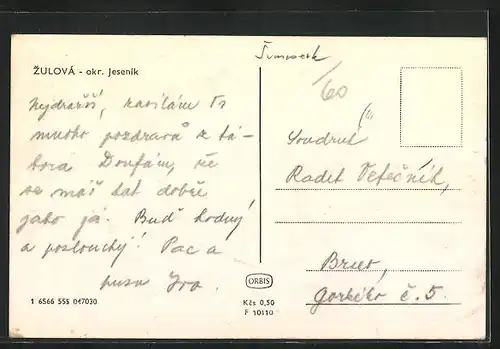 ŽULOVÁ - okr. Jeseník
posílám Ti
mnoho pozdravů z tá-
bora Doufám, že
se máš tak dobře
jako já. Buď hodný
a poslouchej! Pac a
pusu Iva.
1 6566 555 047030
60
Radek Večečník,
Brno,
Gorkého č. 5.
ORBIS
Kčs 0,50
F 10110